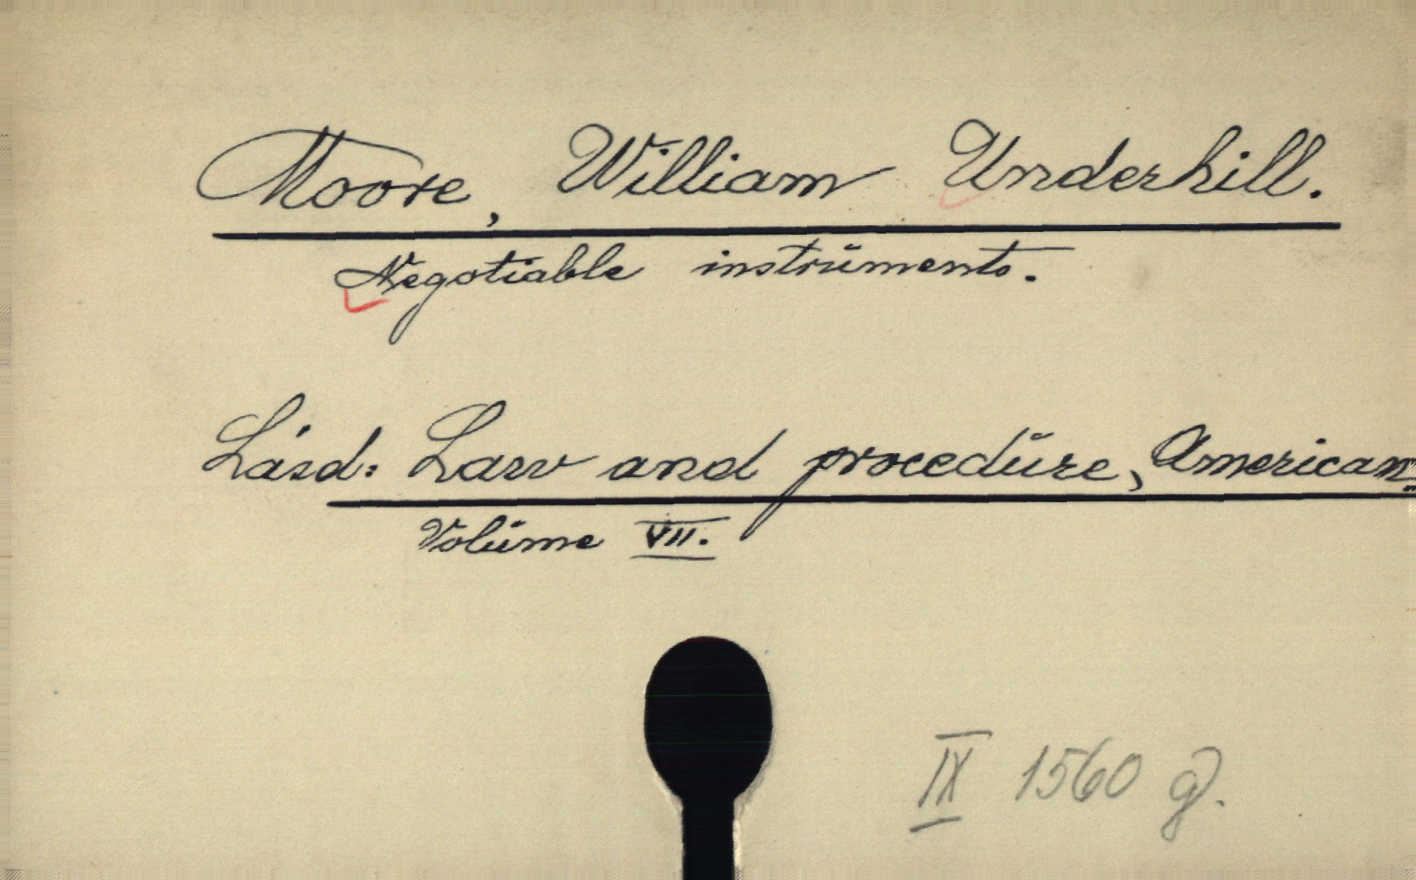 Moore, William Underhill.
Negotiable instruments.
Lásd: Law and procedure, American.
Volume VII.
IX 1560 g.